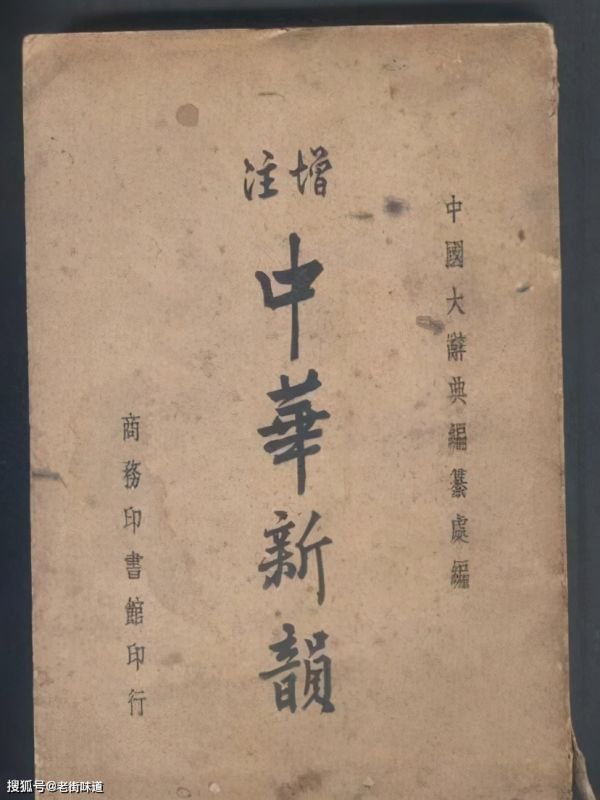 中國大辭典編纂處編
增注
中華新韻
商務印書館印行
搜狐号@老街味道